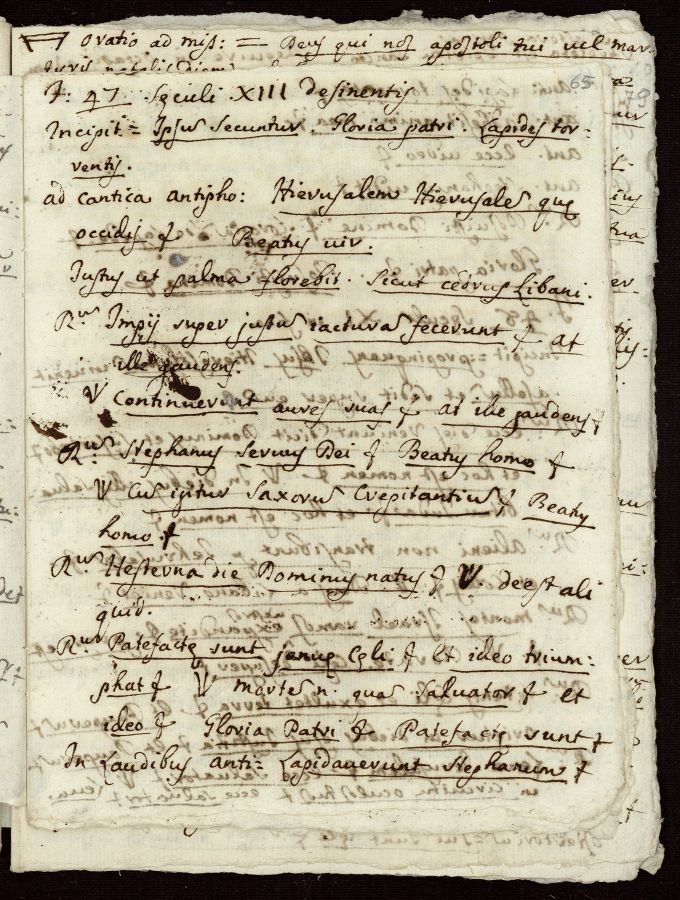 Oratio ad miss: = Deus qui nos apostoli tui vel mar-
tyris natalis
65
79
F: 47 Sęculi XIII desinentis
Incipit = Ipsum secuntur. Gloria patri. Lapides tor-
ventis.
ad cantica antipho: Hierusalem Hierusalē quę
occidis & Beatus uir.
Iustus ut palma florebit. Sicut cedrus Libani.
Rum Impij super justū iacturā fecerunt & at
ille gaudens.
V Continuerunt aures suas & at ille gaudens &
Rum Stephanus servus Dei & Beatus homo &
V Cū igitur Saxorū Crepitantiū & Beatus
homo &
Rum Hesterna die Dominus natus & V. deest ali
quid.
Rum Patefactę sunt januę Cęli & Et ideo trium=
phat & V Mortē n. quā Saluator & et
ideo & Gloria Patri & Patefactę sunt &
In Laudibus anti= Lapidauerunt Stephanum &